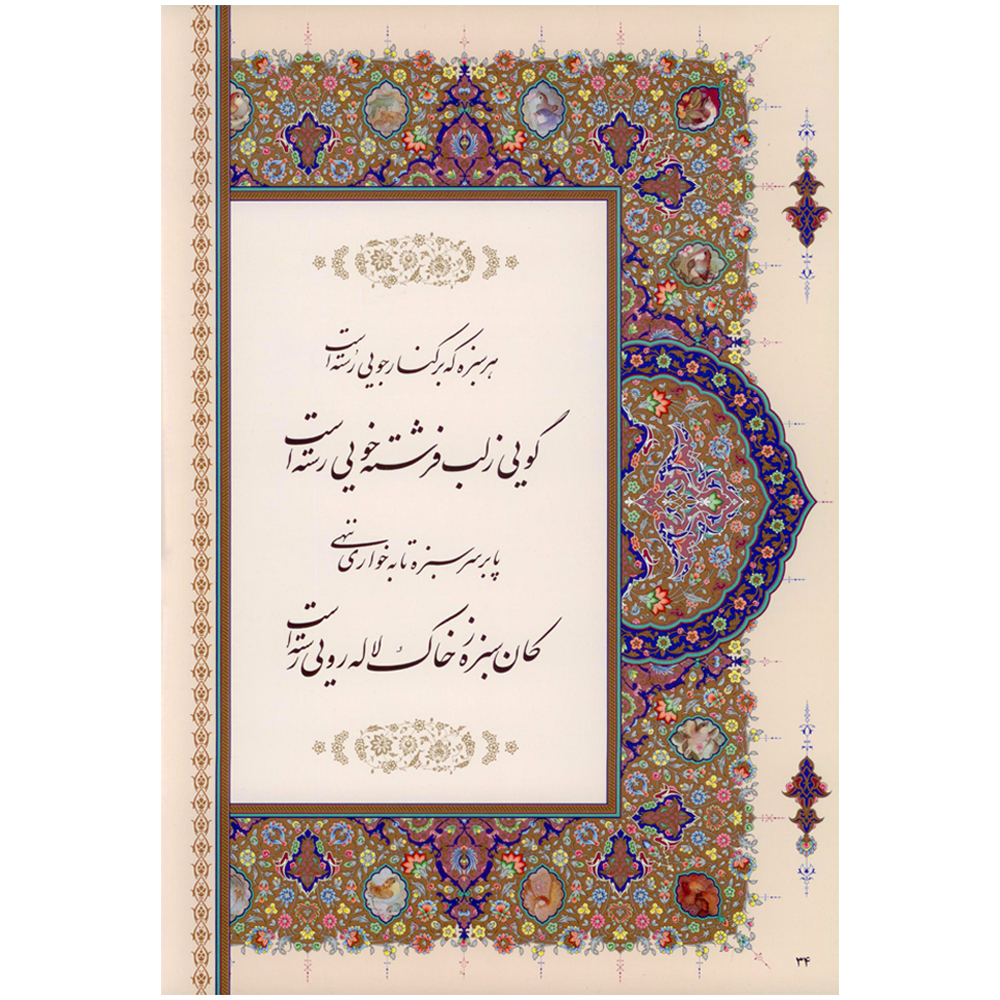 هر سبزه که بر کنار جویی رُسته است
گویی ز لب فرشته خویی رسته است
پا بر سر سبزه تا به خواری ننهی
کان سبزه ز خاک لاله رویی رسته است
۳۴